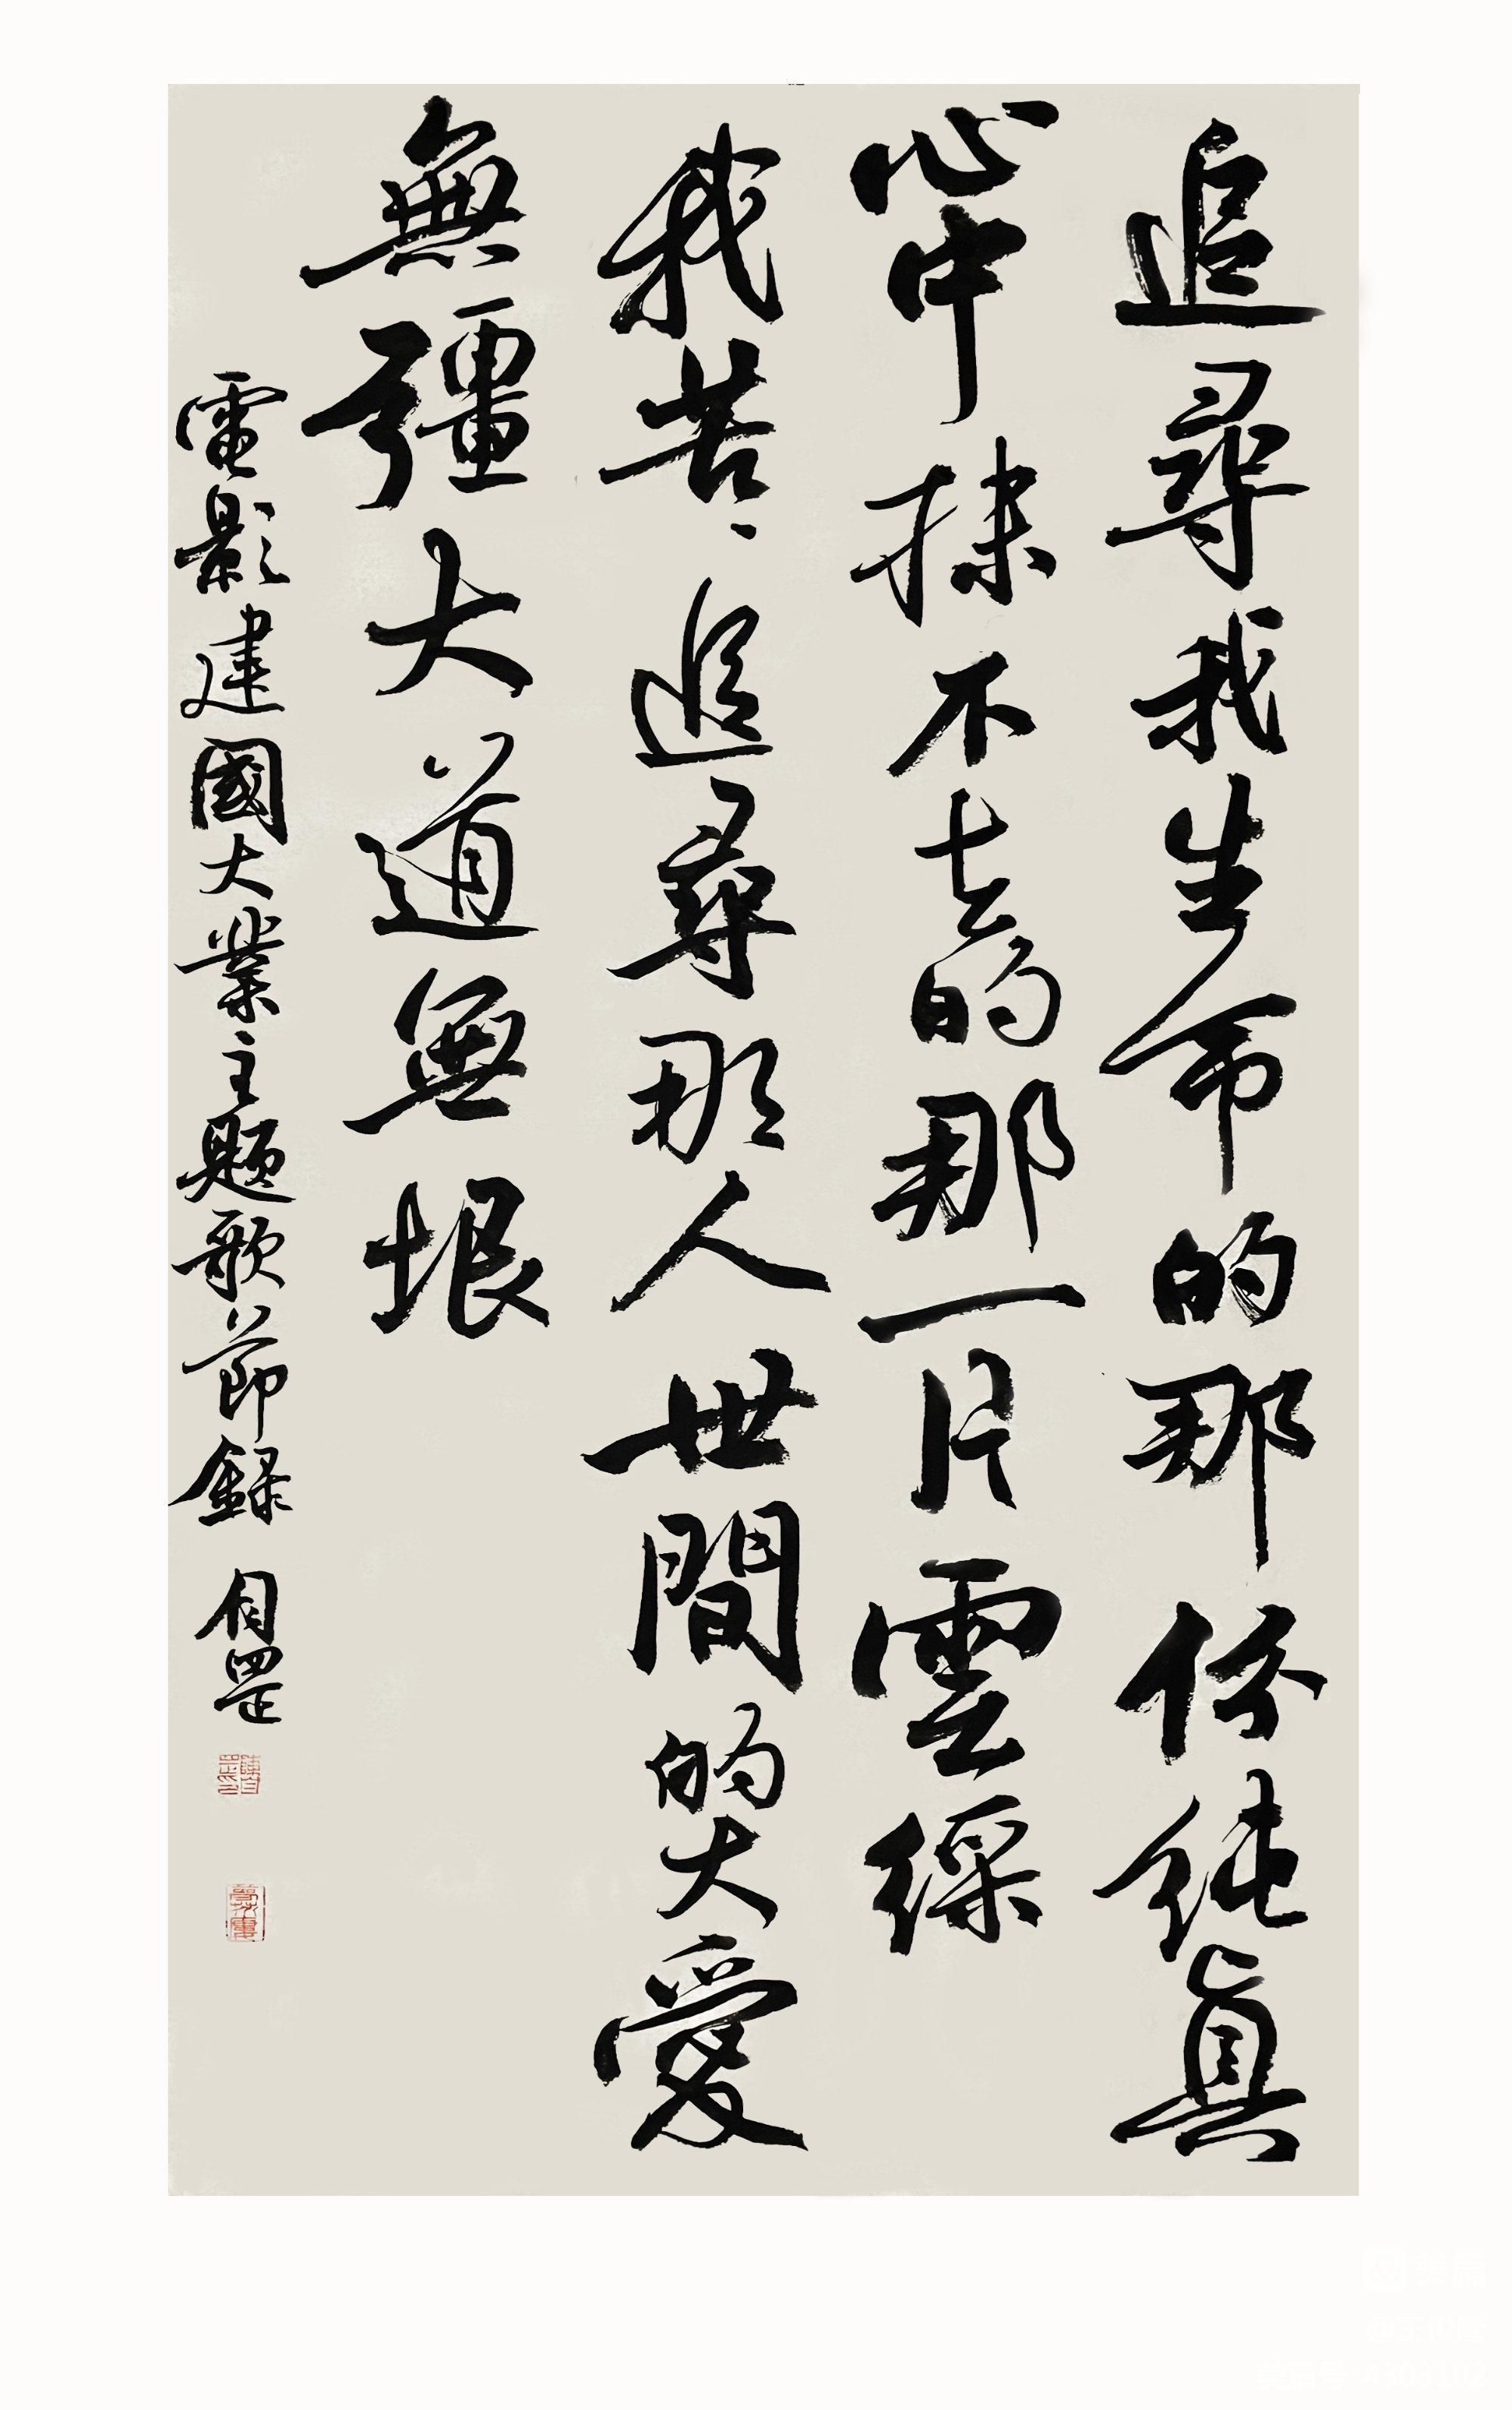 追尋我生命的那份純真
心中抹不去的那一片雲綵
我苦苦追尋那人世間的大愛
無疆大道無垠
電影建國大業主題歌節録 自罡